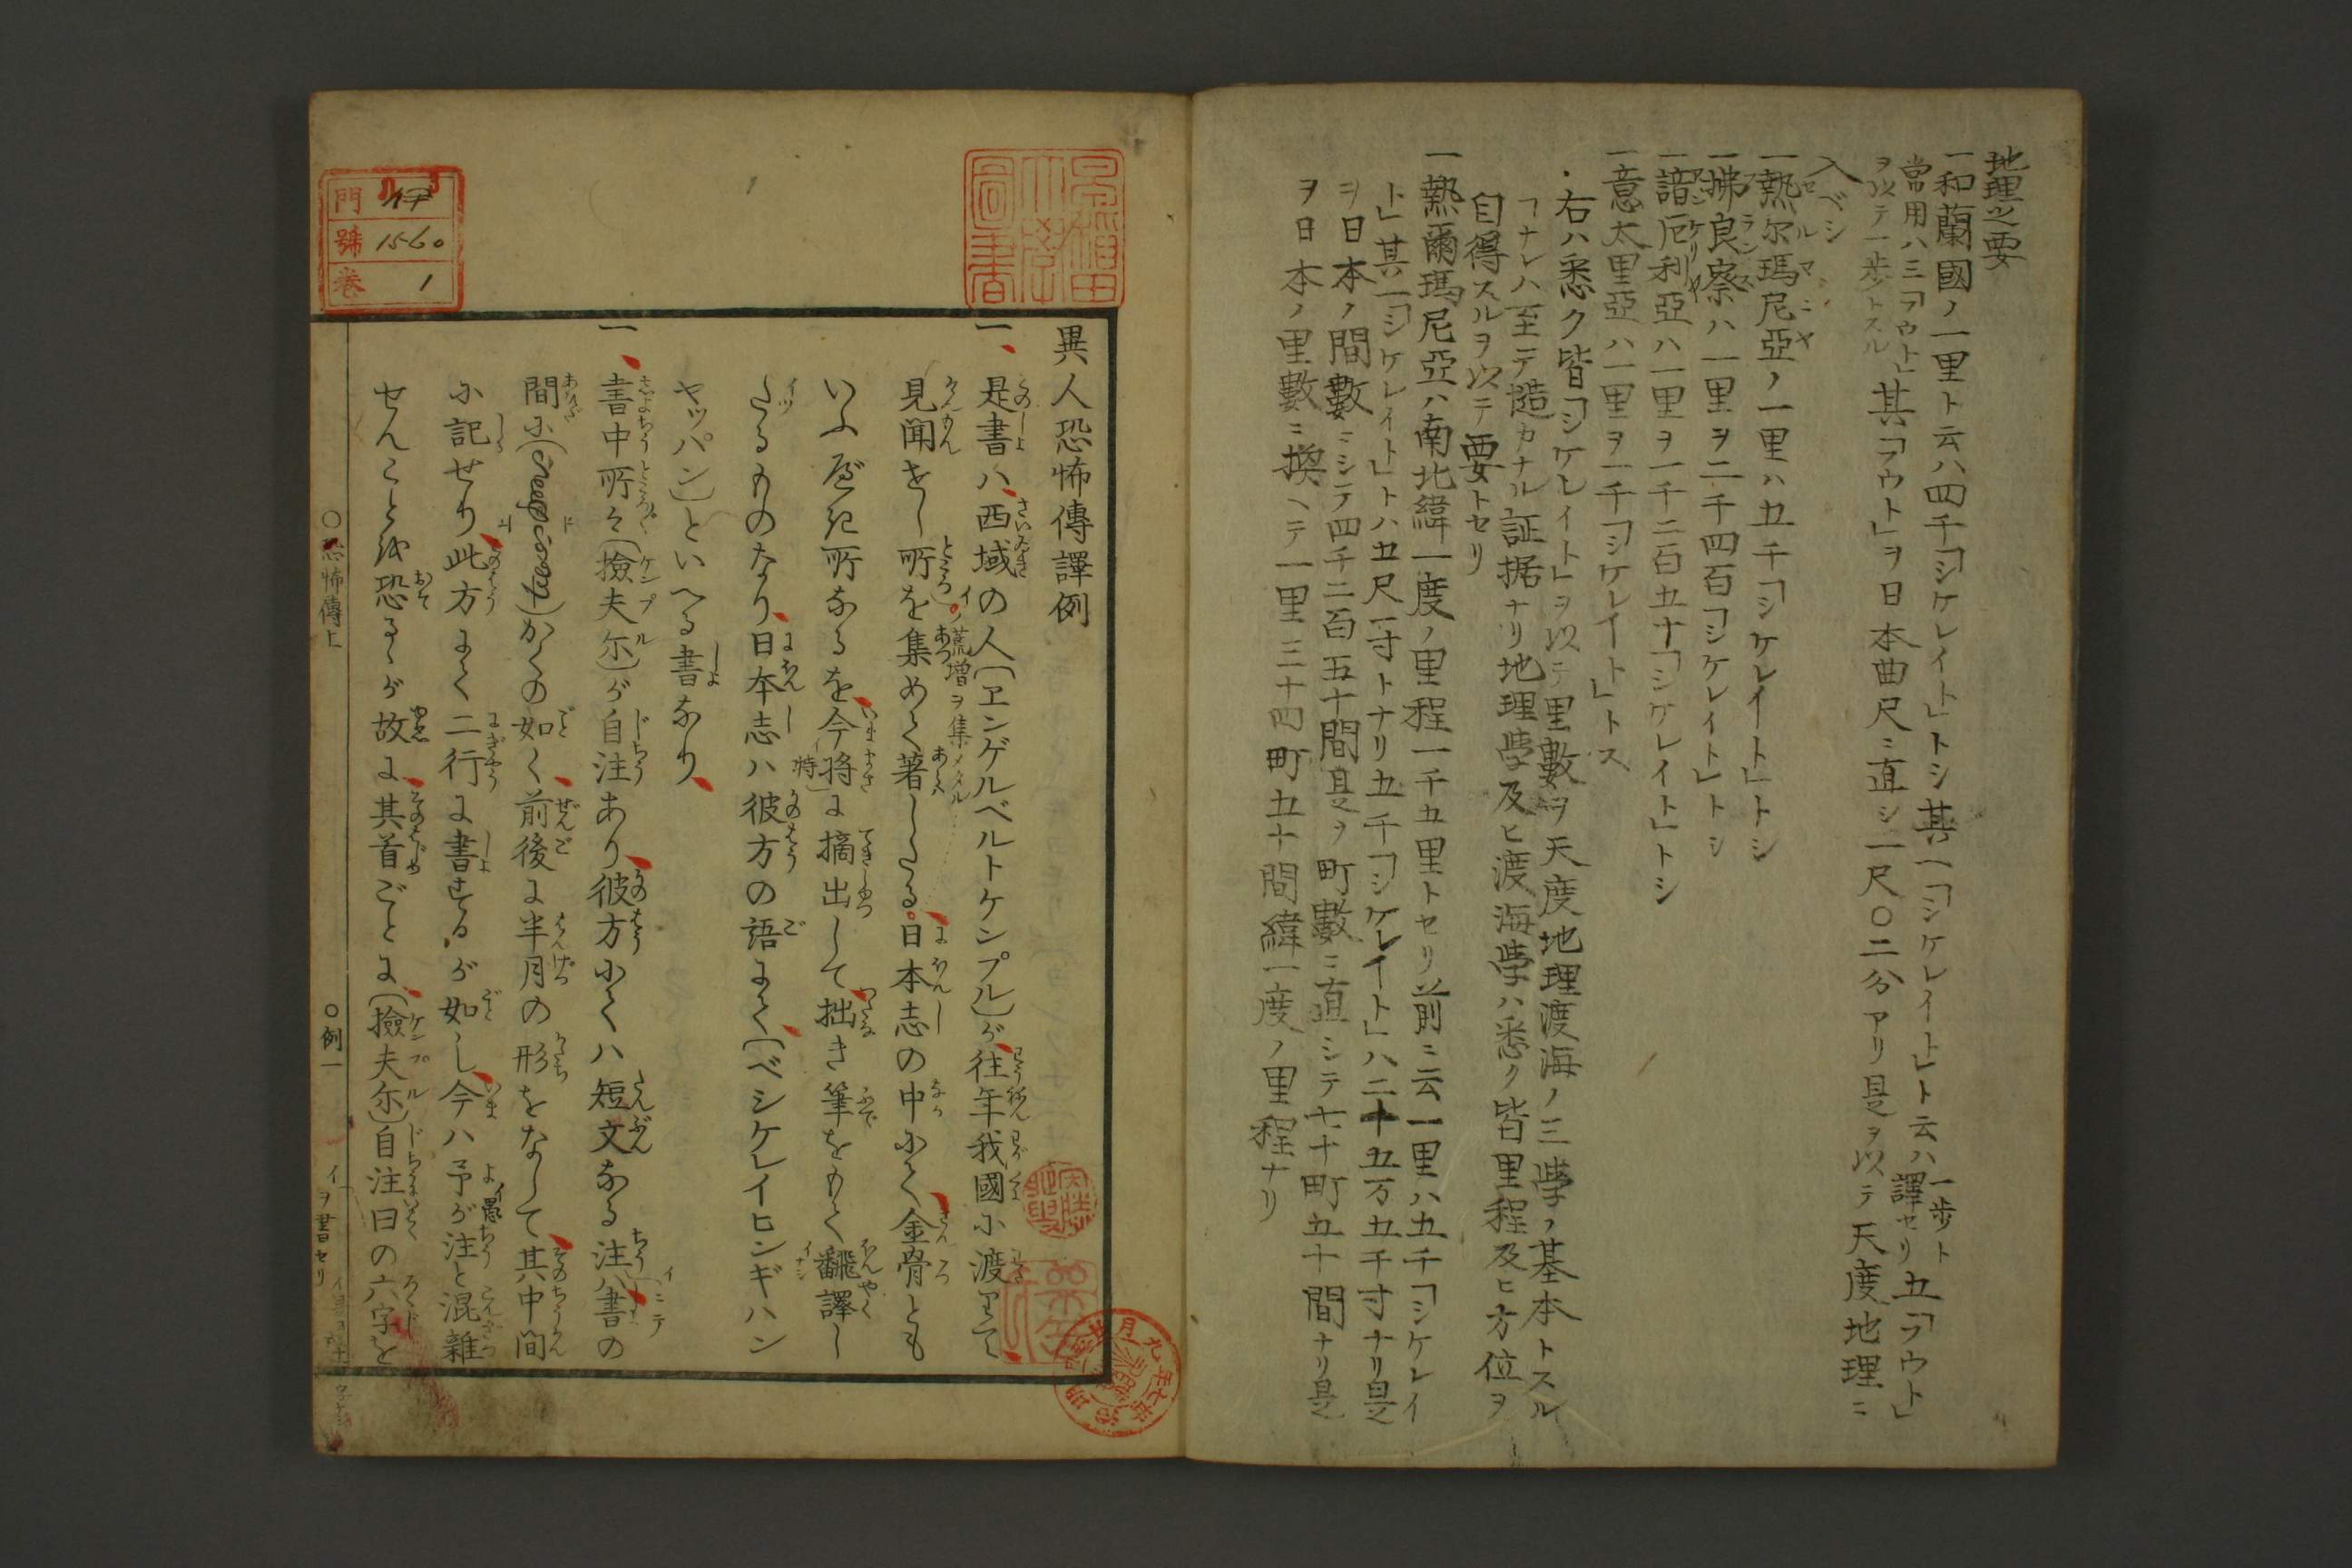 地理之要
一和蘭國ノ一里ト云ハ四千「シケレイト」トシ其一「シケレイト」ト云ハ一歩ト譯セリ五「フウト」
常用ハ三「フウト」其「フウト」ヲ日本曲尺ニ直シ一尺〇二分アリ是ヲ以テ天度地理ニ
ヲ以テ一歩トスル
入ベシ
一熱尓瑪尼亞ノ一里ハ五千「シケレイート」トシ
ゼルマニヤ
一拂良察ハ一里ヲ二千四百「シケレイト」トシ
フランス
一諳厄利亞ハ一里ヲ一千二百五十「シケレイト」トシ
アンケリヤ
一意太里亞ハ一里ヲ一千「シケレイート」トス
・右ハ悉ク皆「シケレイト」ヲ以テ里數ヲ天度地理渡海ノ三學ノ基本トスル
ヿナレハ至テ慥カナル証据ナリ地理學及ヒ渡海學ハ悉ク皆里程及ヒ方位ヲ
自得スルヲ以テ要トセリ
一熱爾瑪尼亞ハ南北緯一度ノ里程一千五里トセリ前ニ云一里ハ五千「シケレイ
ト」其一「シケレイト」トハ五尺一寸トナリ五千「シケレイート」ハ二十五万五千寸ナリ是
ヲ日本ノ間數ニシテ四千二百五十間是ヲ町數ニ直シテ七十町五十間ナリ是
ヲ日本ノ里數ニ換ヘテ一里三十四町五十間緯一度ノ里程ナリ
早稲田大學圖書
門 號 1560 卷 1
異人恐怖傳譯例
一、是書ハ、西域の人〔ヱンゲルベルトケンプル〕が、往年我國に渡りて、
見聞せし所を集めて著したる、日本志の中にて、金骨とも
イ荒増ヲ集メタル
いふべき所なるを、今将に摘出して、拙き筆をもて翻譯し
たるものなり、日本志ハ彼方の語にて、〔ベシケレイヒンギハン
ヤッパン〕といへる書なり、
一、書中所々〔撿夫尓〕が自注あり、彼方にてハ短文なる注ハ、書の
間に( )かくの如く、前後に半月の形をなして、其中間
に記せり、此方にて二行に書するが如し、今ハ予が注と混雜
せんことを恐るゝが故に、其首ごとに、〔撿夫尓〕自注曰の六字を
〇恐怖傳上
〇例一
イヲ書セリ